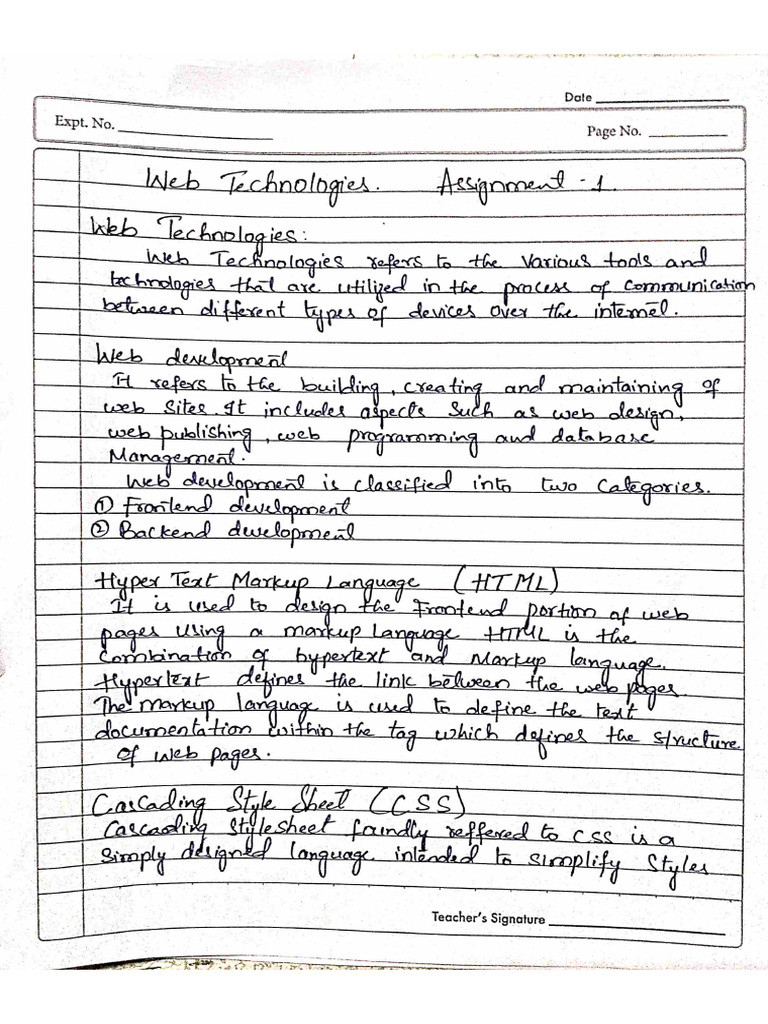 Date
Expt. No.
Page No.
Web Technologies. Assignment - 1.
Web Technologies:
Web Technologies refers to the various tools and
technologies that are utilized in the process of communication
between different types of devices over the internet.
Web development
It refers to the building, creating and maintaining of
web sites. It includes aspects such as web design,
web publishing, web programming and database
Management.
Web development is classified into two categories.
① Frontend development
② Backend development
Hyper Text Markup Language (HTML)
It is used to design the Frontend portion of web
pages using a markup language HTML is the
combination of hypertext and Markup language.
Hypertext defines the link between the web pages.
The markup language is used to define the text
documentation within the tag which defines the structure
of web pages.
Cascading Style Sheet (CSS)
Cascading stylesheet faindly reffered to CSS is a
simply designed language intended to simplify styles
Teacher's Signature